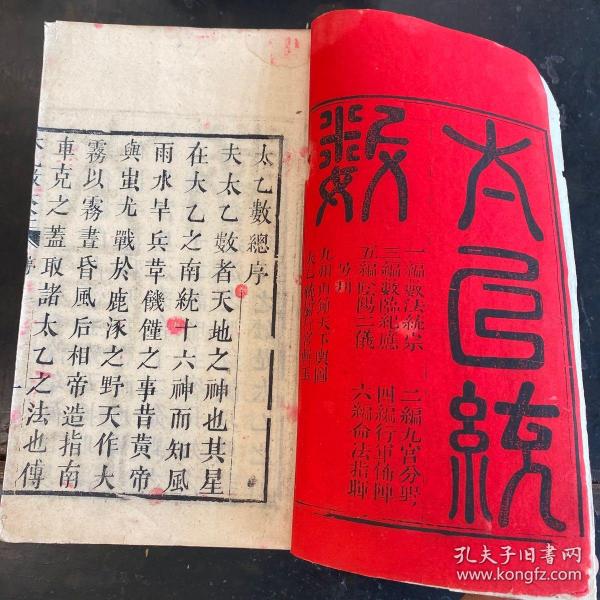 太乙統
數
一編數法統宗
二編九宮分野
三編數臨紀應
四編行軍佈陣
五編陰陽二儀
六編命法指歸
太乙數總序
夫太乙數者天地之神也其星
在大乙之南統十六神而知風
雨水旱兵革饑饉之事昔黃帝
與蚩尤戰於鹿涿之野天作大
霧以霧晝昏風后相帝造指南
車克之蓋取諸太乙之法也傳
孔夫子旧書网
www.kongfz.com